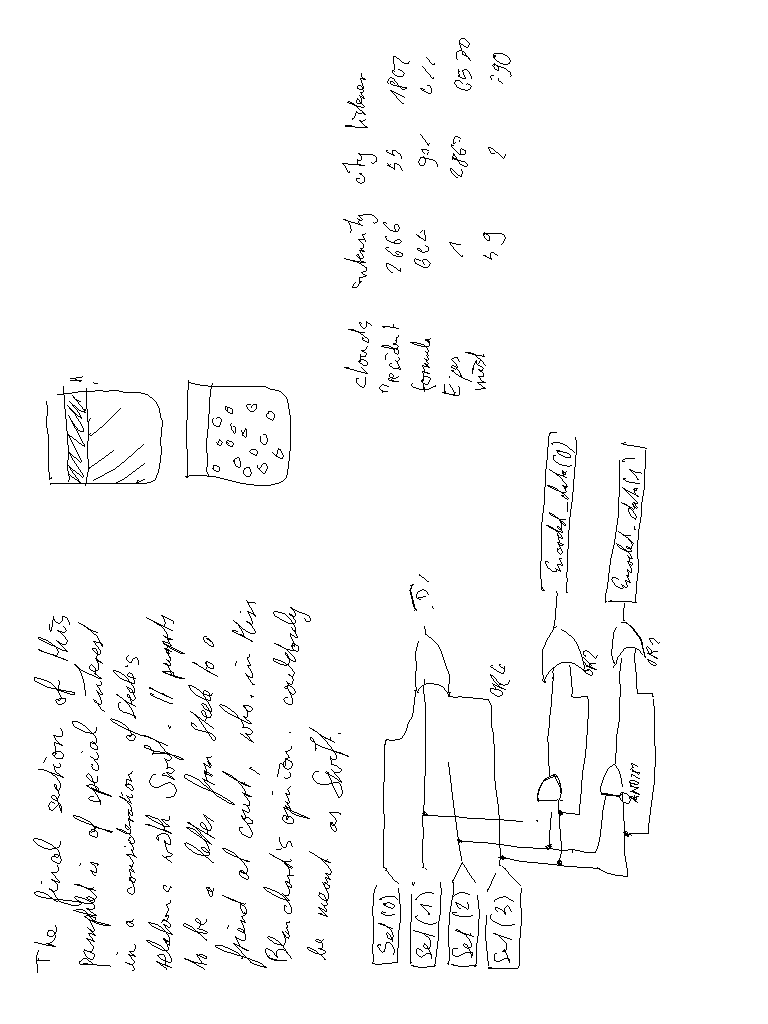 The final section of this
pamphlet is of special interest
in a consideration of Steele's
relations with Swift. It purports
to be a letter from Steele to a
friend at court, who, in Miss
Blanchard's opinion, could only
be meant as Swift.
clouds intensity city listener
2666 55 1807
formula
1
mist 59 2
Sel(0)
Sel(1)
Sel(2)
Sel(3)
OR2
Encoded_data(0)
OR2
Encoded_data(1)